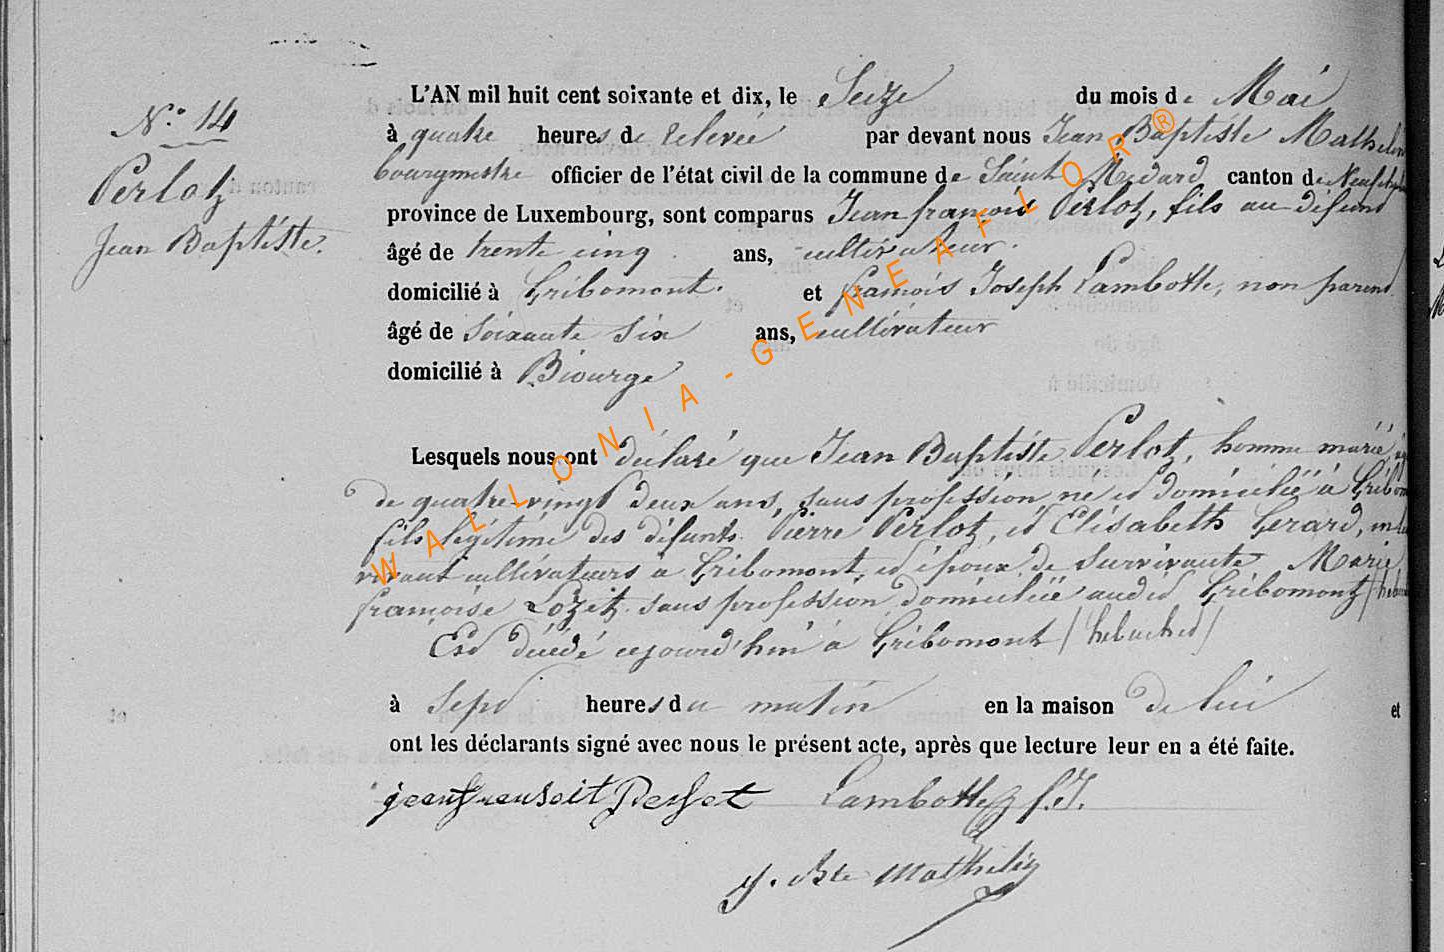 N.° 14
Perlot
Jean Baptiste.
L'AN mil huit cent soixante et dix, le Seize du mois de Mai
à quatre heures de relevée par devant nous Jean Baptiste Mathelin
bourgmestre officier de l'état civil de la commune de Saint Médard canton de
province de Luxembourg, sont comparus Jean françois Perlot, fils au défunt
âgé de trente cinq ans, cultivateur.
domicilié à Gribomont. et françois Joseph Lambotte, non parent
âgé de soixante six ans, cultivateur
domicilié à Biourge
Lesquels nous ont déclaré que Jean Baptiste Perlot, homme marié,
de quatre-vingt deux ans, sans profession né et domicilié à
fils légitime des défunts Pierre Perlot, et Elisabeth Gerard, en leur
vivant cultivateurs à Gribomont, et époux de survivante Marie
françoise Lozet sans profession domiciliée audit Gribomont
Est décédé cejourd'hui à Gribomont
à Sept heures du matin en la maison de lui et
ont les déclarants signé avec nous le présent acte, après que lecture leur en a été faite.
Lambotte f.J.
J. Bte Mathelin
WALLONIA-GENEAFLOR®